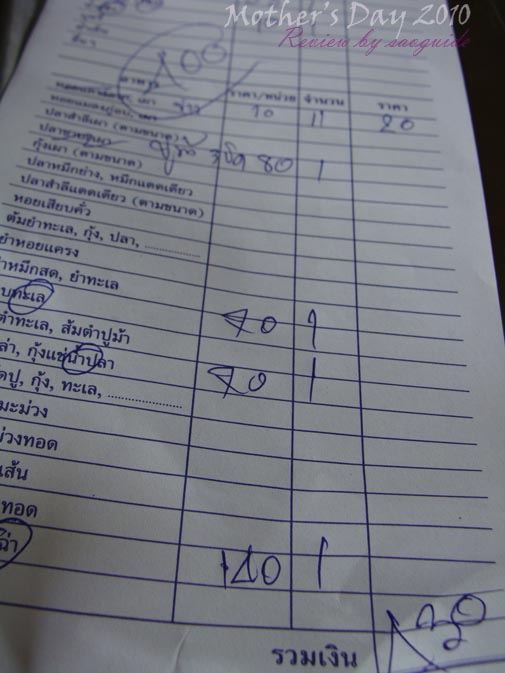 Mother's Day 2010
Review by saoguide
ราคา/หน่วย จำนวน ราคา
10 11 20
ปลาสำลีเผา (ตามขนาด)
80 1
กุ้งเผา (ตามขนาด)
ปลาหมึกย่าง, หมึกแดดเดียว
ปลาสำลีแดดเดียว (ตามขนาด)
หอยเสียบคั่ว
ต้มยำทะเล, กุ้ง, ปลา, ...............
ยำหอยแครง
ำหมึกสด, ยำทะเล
ทะเล
ตำทะเล, ส้มตำปูม้า 70 1
ล่า, กุ้งแช่น้ำปลา
ดปู, กุ้ง, ทะเล, .................... 70 1
มะม่วง
ม่วงทอด
เส้น
ทอด
ฉ่า 120 1
รวมเงิน